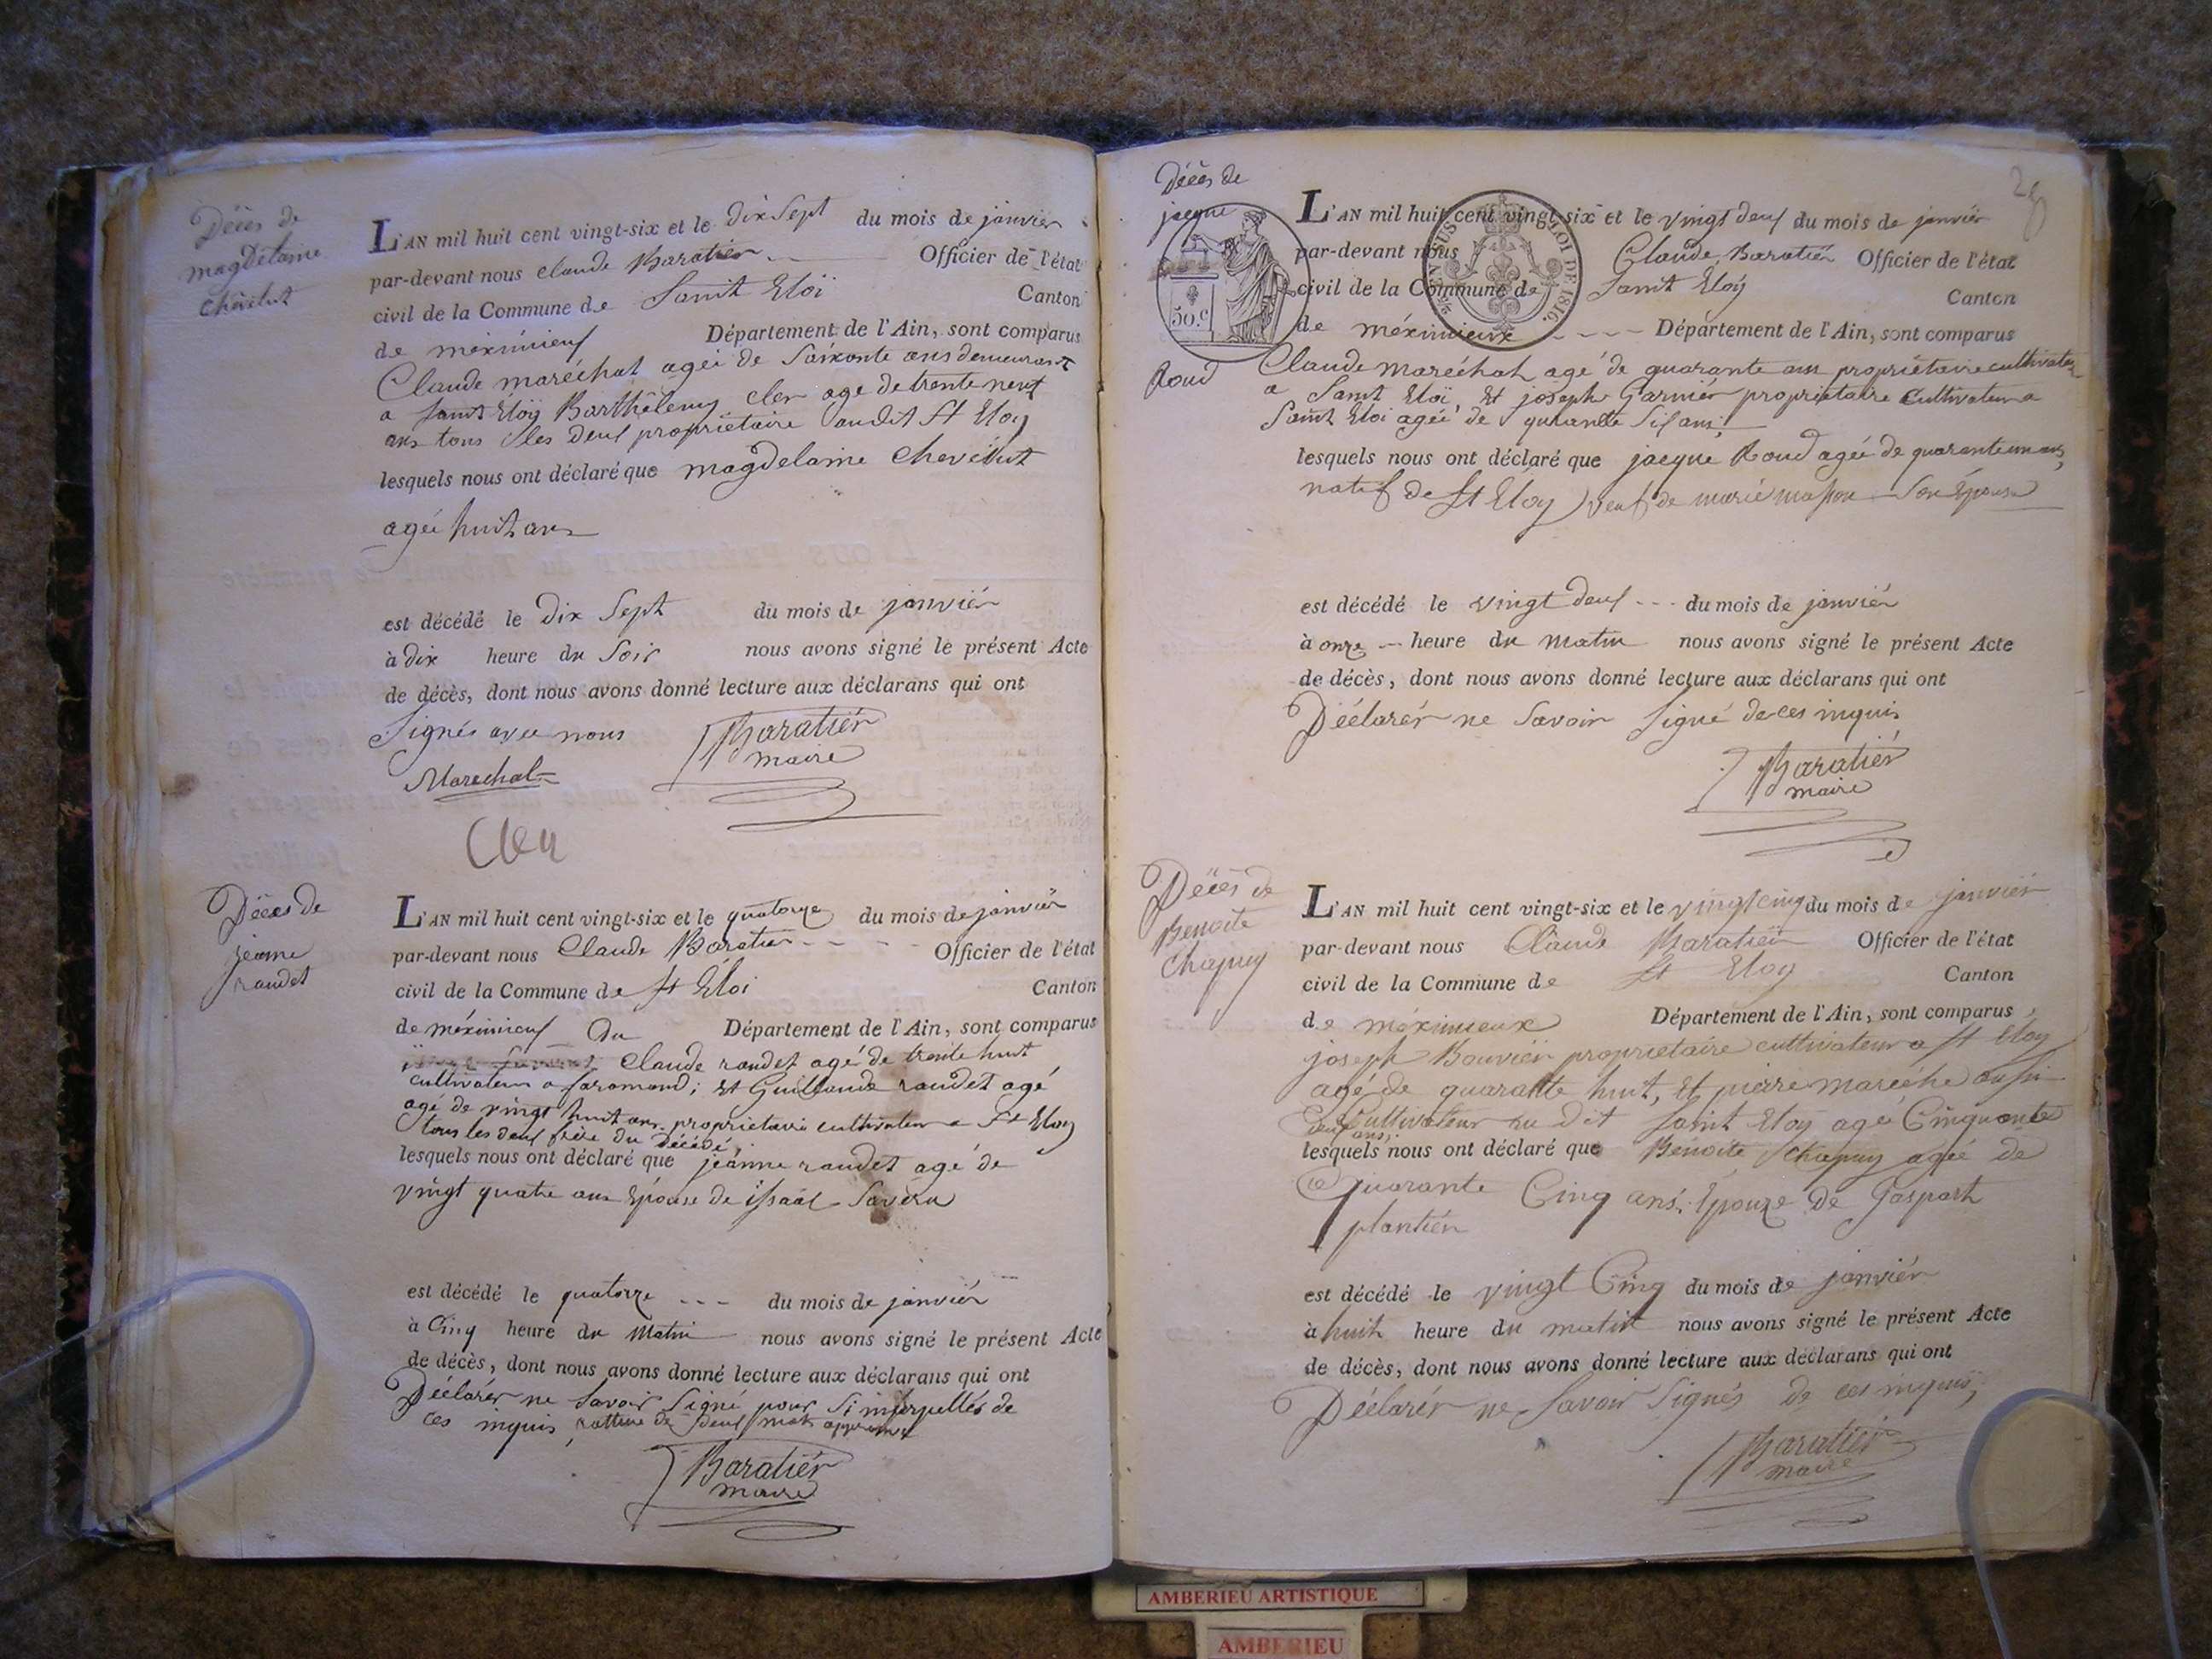 Décès de
magdelaine
chevelut
L'AN mil huit cent vingt-six et le dix Sept du mois de janvier
par-devant nous Claude Baratier Officier de l'état
civil de la Commune de Saint Eloi Canton
de méximieux Département de l'Ain, sont comparus
Claude maréchal ageé de Soixante ans demeurant
a Saint Eloy Barthelemy cler age de trente neuf
ans tous les deux propriétaire audit St Eloy
lesquels nous ont déclaré que magdelaine chevelut
ageé huit ans
est décédé le Dix Sept du mois de janvier
à dix heure du Soir nous avons signé le présent Acte
de décès, dont nous avons donné lecture aux déclarans qui ont
Signés avec nous
Baratier
maire
Marechal
Cler
Décès de
jeanne
raudet
L'AN mil huit cent vingt-six et le quatorze du mois de janvier
par-devant nous Claude Baratier Officier de l'état
civil de la Commune de St Eloi Canton
de méximieux Du Département de l'Ain, sont comparus
Claude raudet agé de trente huit
cultivateur a faramand; Et Guillaude raudet agé
agé de vingt huit ans propriétaire cultivateur a St Eloy
tous les deux frère du Décédé
lesquels nous ont déclaré que jeanne raudet agé de
vingt quatre ans Epouse de issaac
est décédé le quatorze du mois de janvier
à Cinq heure du Matin nous avons signé le présent Acte
de décès, dont nous avons donné lecture aux déclarans qui ont
Déclarér ne Savoir Signé pour Si interpellés de
ces inquis rature de deux mots
Baratier
maire
28
Décès de
jacque
Roud
50.c
EN SUS LOI DE 1816.
L'AN mil huit cent vingt-six et le vingt deux du mois de janvier
par-devant nous Claude Baratier Officier de l'état
civil de la Commune de Saint Eloy Canton
de méximieux Département de l'Ain, sont comparus
Claude maréchal agé de quarante ans propriétaire cultivateur
a Saint Eloi, Et joseph Garnier propriétaire Cultivateur a
Saint Eloi ageé de quarante Six ans
lesquels nous ont déclaré que jacque Roud ageé de quarante un ans
natif de St Eloy veuf de marie masson Son Epouse
est décédé le vingt deux du mois de janvier
à onze heure du matin nous avons signé le présent Acte
de décès, dont nous avons donné lecture aux déclarans qui ont
Déclarér ne Savoir Signé de ces inquis
Baratier
maire
Décès de
Benoite
Chapuy
L'AN mil huit cent vingt-six et le vingt cinq du mois de janvier
par-devant nous Claude Baratier Officier de l'état
civil de la Commune de St Eloy Canton
de méximieux Département de l'Ain, sont comparus
joseph Bouvier propriétaire cultivateur a St Eloy
agé de quarante huit, Et pierre maréche aussi
Cultivateur au dit Saint Eloy agé Cinquante
deux ans
lesquels nous ont déclaré que Benoite Chapuy ageé de
Quarante Cinq ans Epouze De Gaspart
plantier
est décédé le vingt Cinq du mois de janvier
à huit heure du matin nous avons signé le présent Acte
de décès, dont nous avons donné lecture aux déclarans qui ont
Déclarér ne Savoir Signés de ces inquis
Baratier
maire
AMBERIEU ARTISTIQUE
AMBERIEU